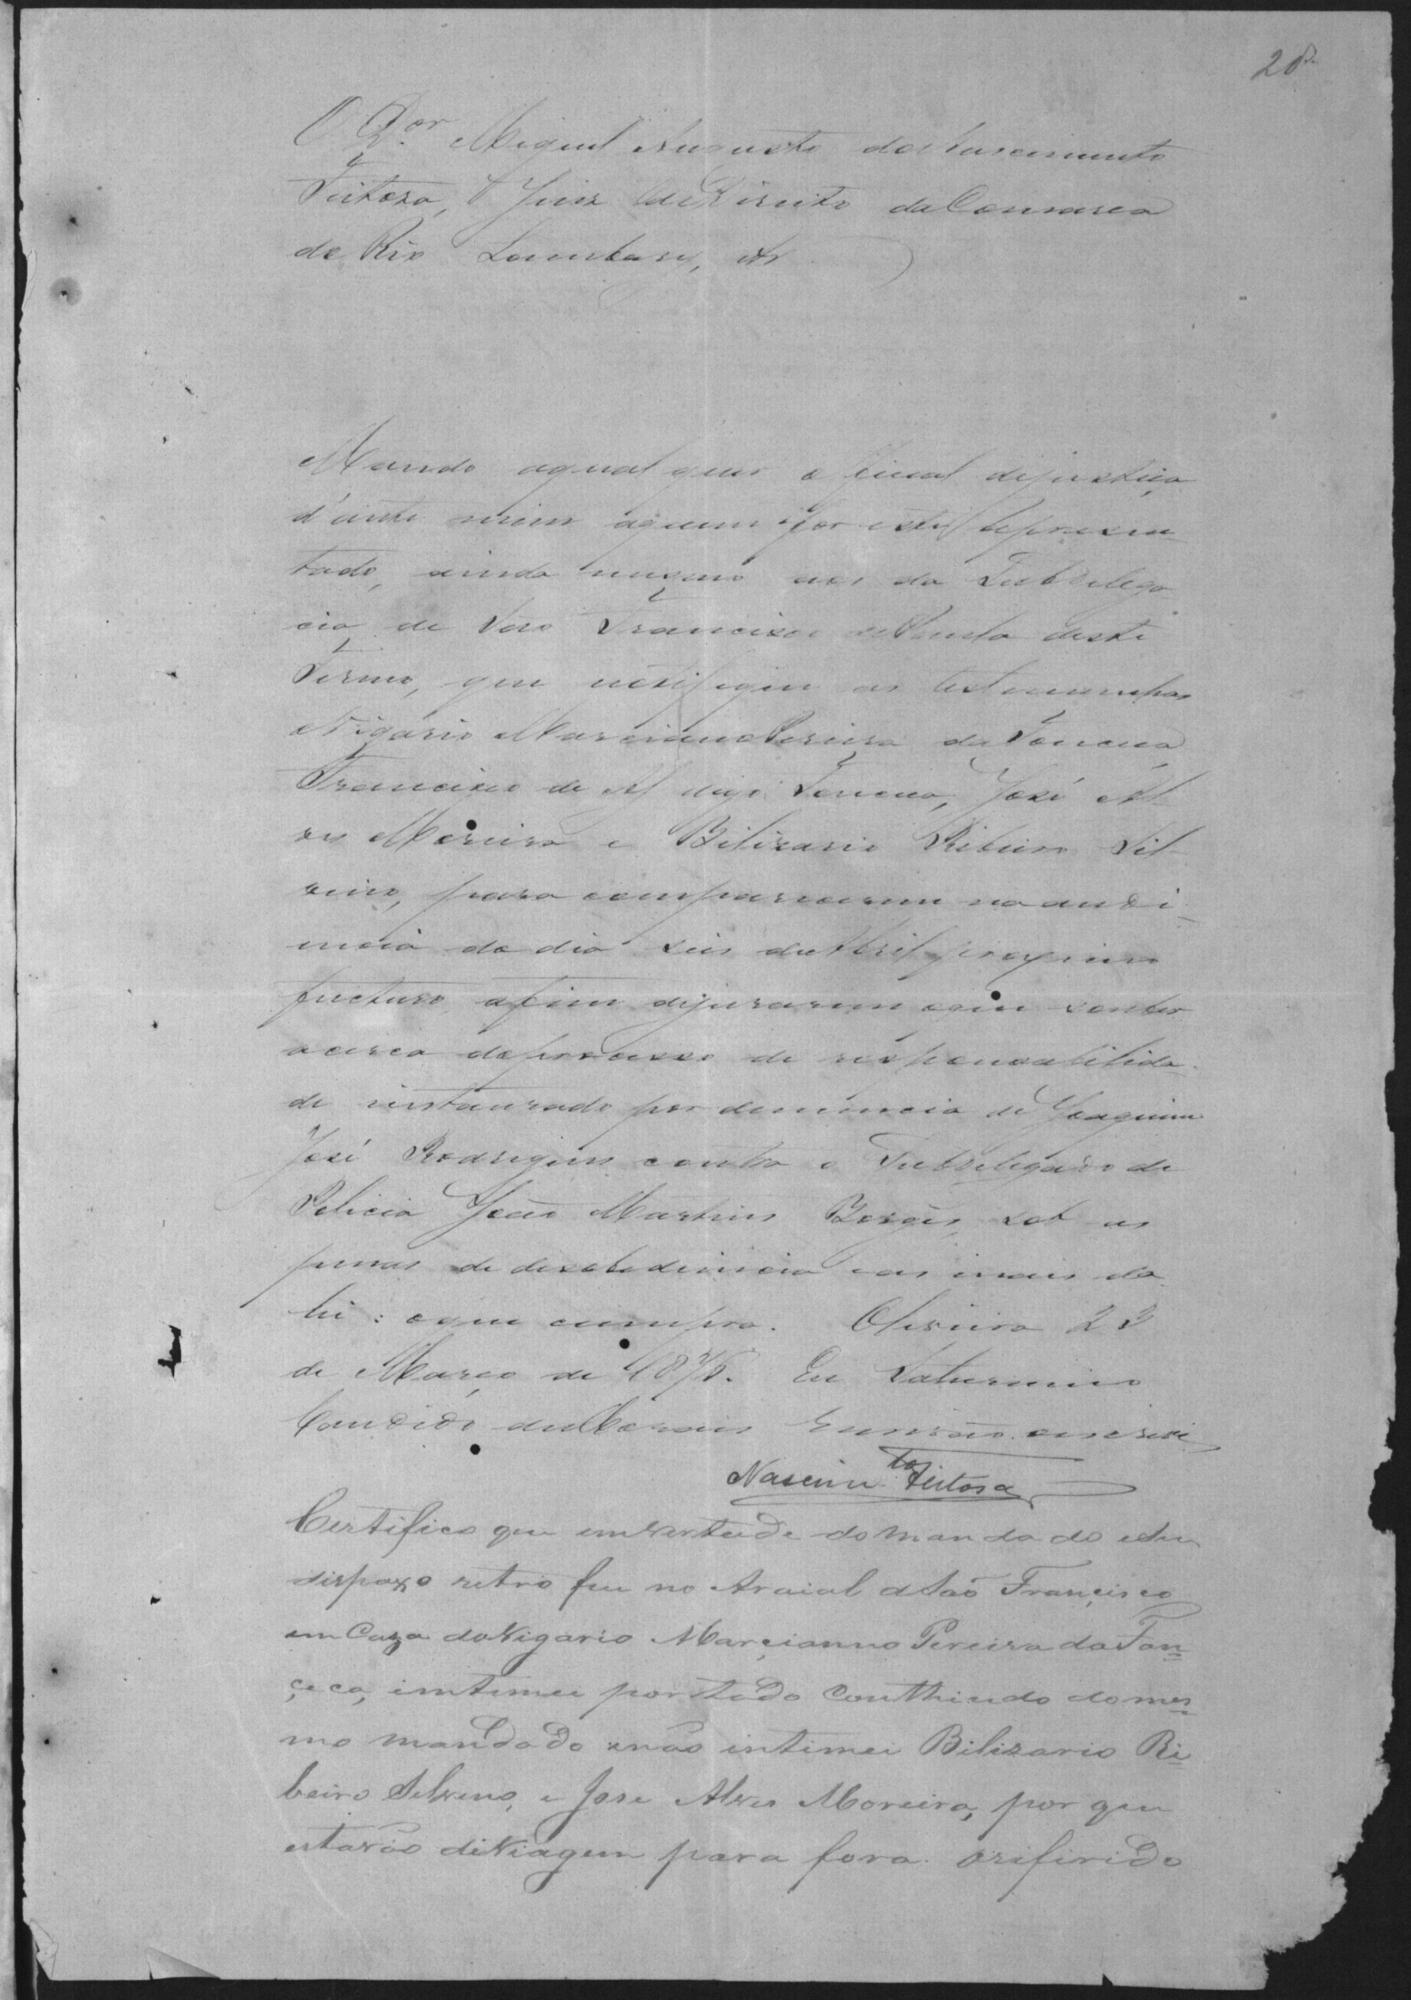 20
O Dor. Miguel Augusto do Nascimento
Feitosa, Juiz de Direito da Comarca
do Rio Lambary, etc
Mando aqualquer official dejustiça
d'ante mim aquem for este apresen
tado, ainda mesmo aos da Subdelega
cia de São Francisco de Paula deste
Termo, que notifiquem as testemunhas
Vigario Marciano Pereira da Fonceca
Francisco de Al digo Fonceca, José Al
ves Moreira e Bilizario Ribeiro Sil
verio, para comparecerem na audi-
encia do dia seis de Abril proximo
fucturo afim dejurarem oque souber
acerca doprocesso de responsabilida-
de instaurado por denuncia de Joaquim
José Rodrigues contra o Subdelegado de
Policia João Martins Borges, sob as
penas de desobediencia e as mais da
lei: oque cumpra. Oliveira 23
de Março de 187. Eu Saturnino
Candido de Moraes Escrivão oescrevi
Nascimto Feitosa
Certifico que emvertude do mandado e seu
dispaxo retro fui no Araial de São Françisco
em Caza do Vigario Marçianno Pereira da Fon=
çeca, imtimei por todo Conthiudo do mes=
mo mandado enão intimei Bilizario Ri=
beiro Silverio, e Jose Alves Moreira, por que
estavão de Viagem para fora. O rifirido